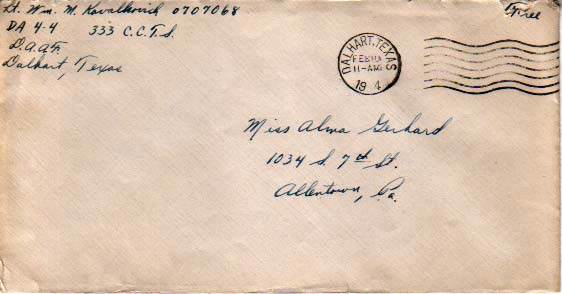 Lt. Wm. M. Kavalkovich 0707068
DA 4-4 333 C.C.T.S.
D.A.A.F.
Dalhart, Texas
Free
DALHART, TEXAS
FEB 10
11-AM
194
Miss Alma Gerhard
1034 S. 7th St.
Allentown, Pa.